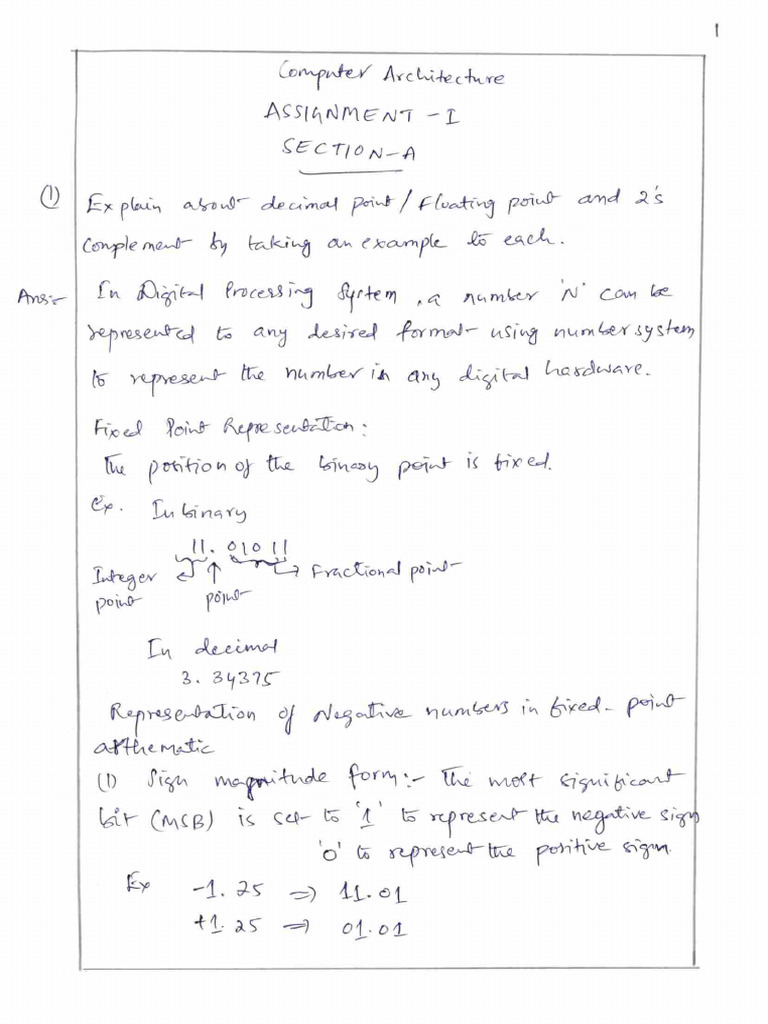 1
Computer Architecture
ASSIGNMENT - I
SECTION-A
(1) Explain about decimal point / Floating point and 2's
Complement by taking an example to each.
Ans:- In Digital Processing System, a number 'N' can be
represented to any desired format using number system
to represent the number in any digital hardware.
Fixed Point Representation:
The position of the binary point is fixed.
Ex. In binary
11. 01011
Integer point
point
Fractional point
In decimal
3. 34375
Representation of Negative numbers in fixed-point
arthematic
(1) Sign magnitude form:- The most significant
bit (MSB) is set to '1' to represent the negative sign
'0' to represent the positive sign.
Ex -1.25 => 11.01
+1.25 => 01.01